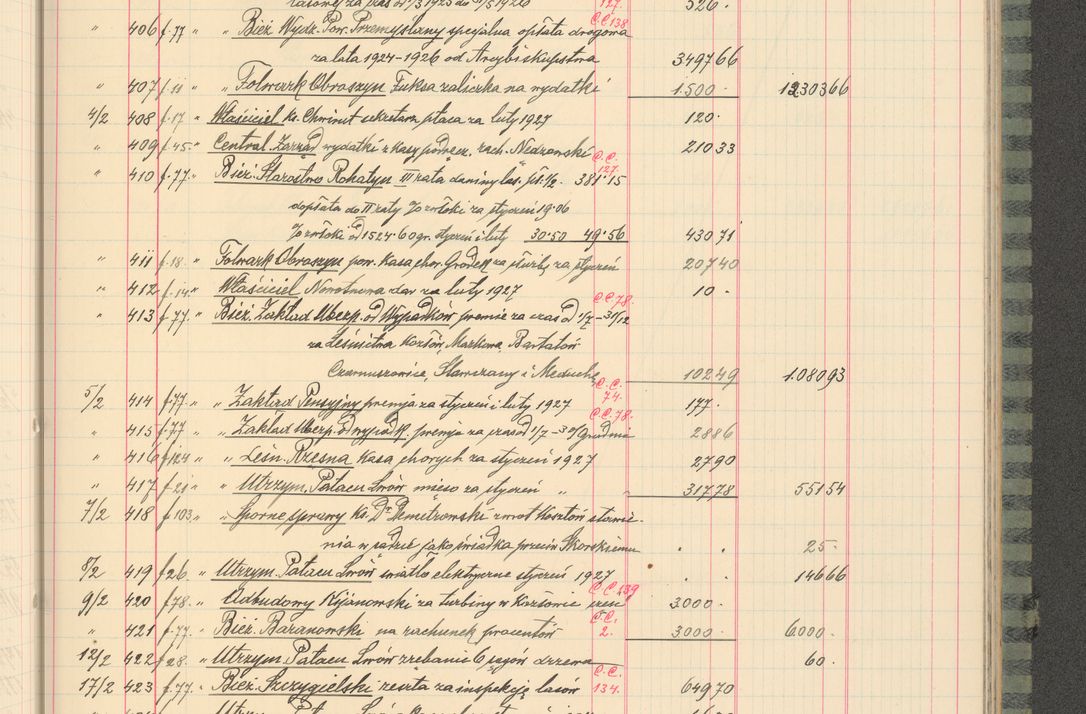 526.
" 406 f. 77 " Bież. Wydz. Pow. Przemyślany specjalna opłata drogowa C.C. 138
za lata 1924-1926 od Arcybiskupstwa 3497 66
" 407 f. 11 " Folwark Obroszyn Fuksa zaliczka na wydatki 1.500 · 12303 66
4/2 408 f. 17 " Właściciel ks. Chwirut sekretarz, płaca za luty 1927 120 ·
" 409 f. 45 " Central. Zarząd wydatki z kasy podręcz. rach. Nedzowski 210 33
" 410 f. 77 " Bież. Starostwo Rohatyn III rata daniny las. pł. 1/2. 381·15 C.C. 127.
dopłata do II raty Zozwłoki za styczeń 19·06
Zozwłoki od 1524·60 gr. styczeń i luty 30·50 49·56 430 71
" 411 f. 18 " Folwark Obroszyn pow. Kasa chor. Gródek za służbę za styczeń 207 40
" 412 f. 14 " Właściciel dar za luty 1927 10 ·
" 413 f. 77 " Bież. Zakład Ubezp. od Wypadków premie za czas od 1/7 - 31/12 C.C. 78.
za Leśnictwa Kozłów, Markowa, Bartatów
Czarnuszowice, Stawczany i Meducha 102 49 1.080 93
5/2 414 f. 77 " " Zakład Pensyjny premja za styczeń i luty 1927 C.C. 74. 177 ·
" 415 f. 77 " " Zakład Ubezp. od wypadk. premja za czas od 1/7 - 30/ grudnia C.C. 78. 28 86
" 416 f. 124 " " Leśn. Rzesna Kasa chorych za styczeń 1927 27 90
" 417 f. 21 " " Utrzym. Pałacu Lwów mięso za styczeń " 317 78 551 54
7/2 418 f. 103 " " Sporne sprawy Ks. Dr. Demitrowski zwrot kosztów stawie-
nia w sądzie jako świadka przeciw Skorskiemu · · 25 ·
8/2 419 f. 26 " Utrzym. Pałacu Lwów światło elektryczne styczeń 1927 · · 146 66
9/2 420 f. 78 " Odbudowy Kijanowski za turbiny w Kozłowie C.C. 139 3000 ·
" 421 f. 77 " Bież. Baranowski na rachunek procentów C.C. 2. 3000 · 6000 ·
12/2 422 f. 28 " Utrzym. Pałacu Lwów zrębanie 6 sągów drzewa 60 ·
17/2 423 f. 77 " Bież. Szczygielski reszta za inspekcję lasów C.C. 134. 649 70